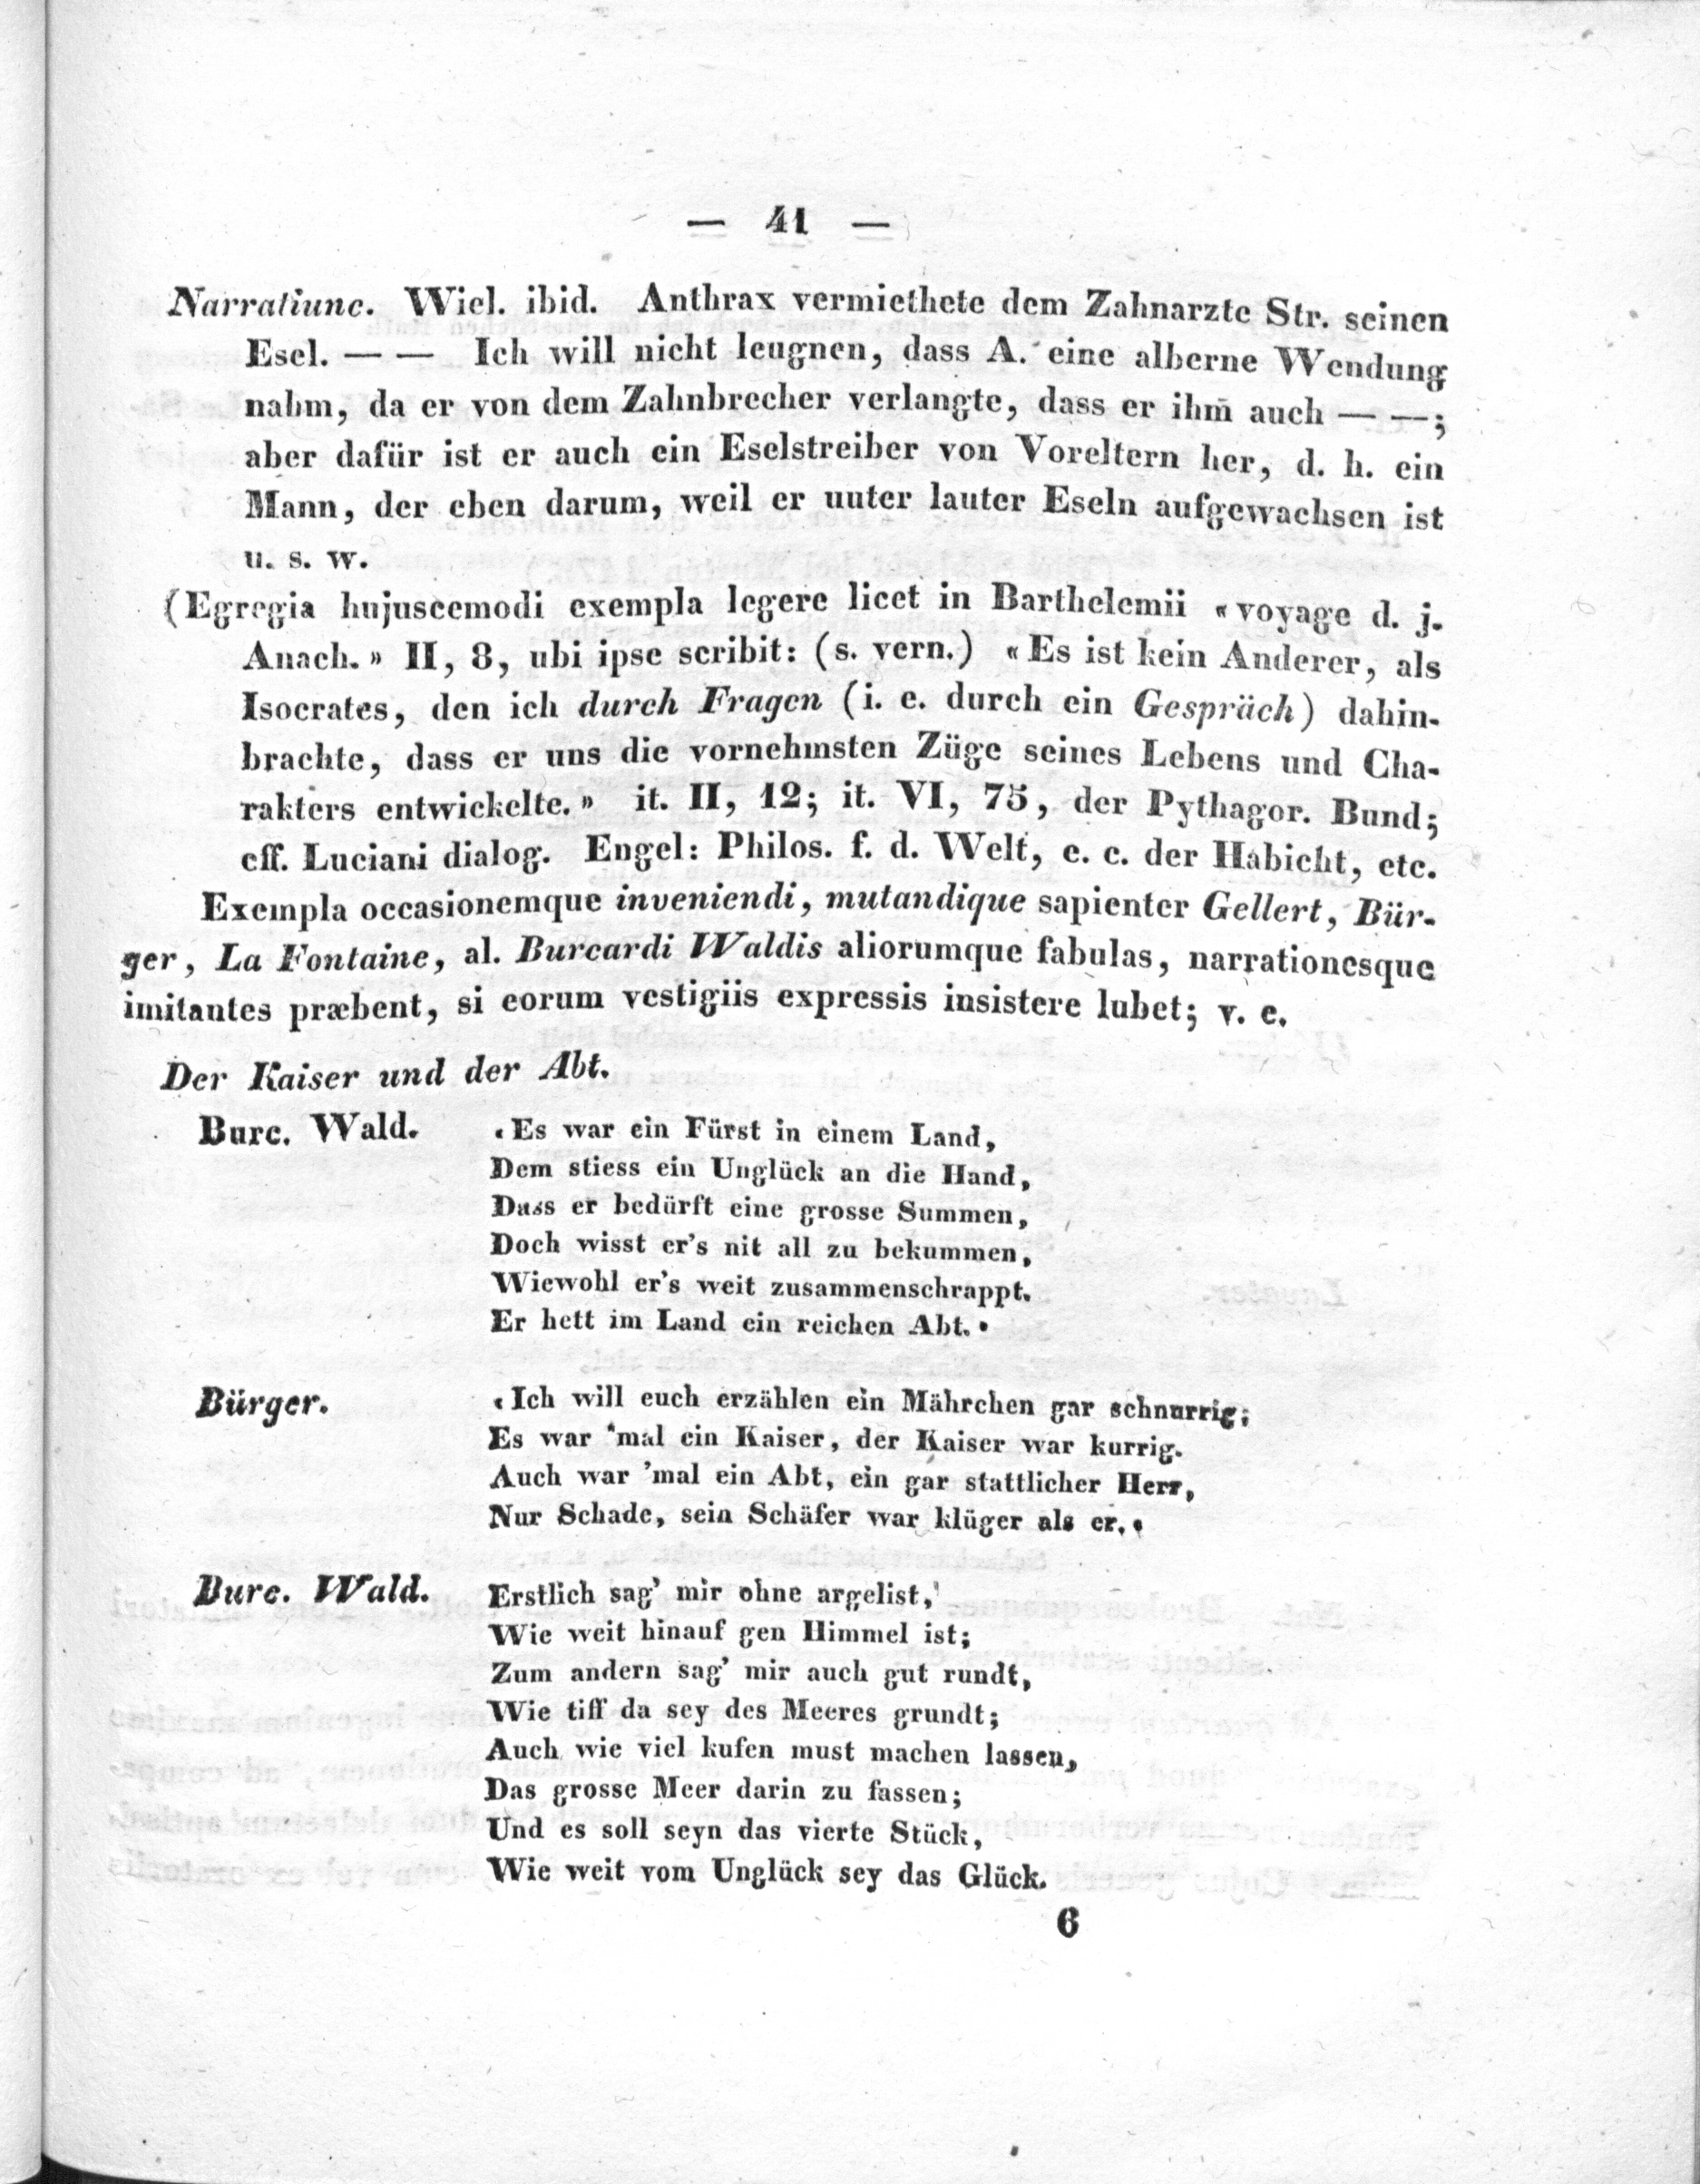 — 41 —
Narratiunc. Wiel. ibid. Anthrax vermiethete dem Zahnarzte Str. seinen
Esel. — — Ich will nicht leugnen, dass A. eine alberne Wendung
nahm, da er von dem Zahnbrecher verlangte, dass er ihm auch — —;
aber dafür ist er auch ein Eselstreiber von Voreltern her, d. h. ein
Mann, der eben darum, weil er uuter lauter Eseln aufgewachsen ist
u. s. w.
(Egregia hujuscemodi exempla legere licet in Barthelemii «voyage d. j.
Anach.» II, 8, ubi ipse scribit: (s. vern.) «Es ist kein Anderer, als
Isocrates, den ich durch Fragen (i. e. durch ein Gespräch) dahin-
brachte, dass er uns die vornehmsten Züge seines Lebens und Cha-
rakters entwickelte.» it. II, 12; it. VI, 75, der Pythagor. Bund;
cff. Luciani dialog. Engel: Philos. f. d. Welt, e. c. der Habicht, etc.
Exempla occasionemque inveniendi, mutandique sapienter Gellert, Bür-
ger, La Fontaine, al. Burcardi Waldis aliorumque fabulas, narrationesque
imitantes præbent, si eorum vestigiis expressis insistere lubet; v. c.
Der Kaiser und der Abt.
Burc. Wald. «Es war ein Fürst in einem Land,
Dem stiess ein Unglück an die Hand,
Dass er bedürft eine grosse Summen,
Doch wisst er's nit all zu bekummen,
Wiewohl er's weit zusammenschrappt.
Er hett im Land ein reichen Abt.»
Bürger. «Ich will euch erzählen ein Mährchen gar schnurrig;
Es war 'mal ein Kaiser, der Kaiser war kurrig.
Auch war 'mal ein Abt, ein gar stattlicher Herr,
Nur Schade, sein Schäfer war klüger als er.»
Burc. Wald. Erstlich sag' mir ohne argelist,
Wie weit hinauf gen Himmel ist;
Zum andern sag' mir auch gut rundt,
Wie tiff da sey des Meeres grundt;
Auch wie viel kufen must machen lassen,
Das grosse Meer darin zu fassen;
Und es soll seyn das vierte Stück,
Wie weit vom Unglück sey das Glück.
6